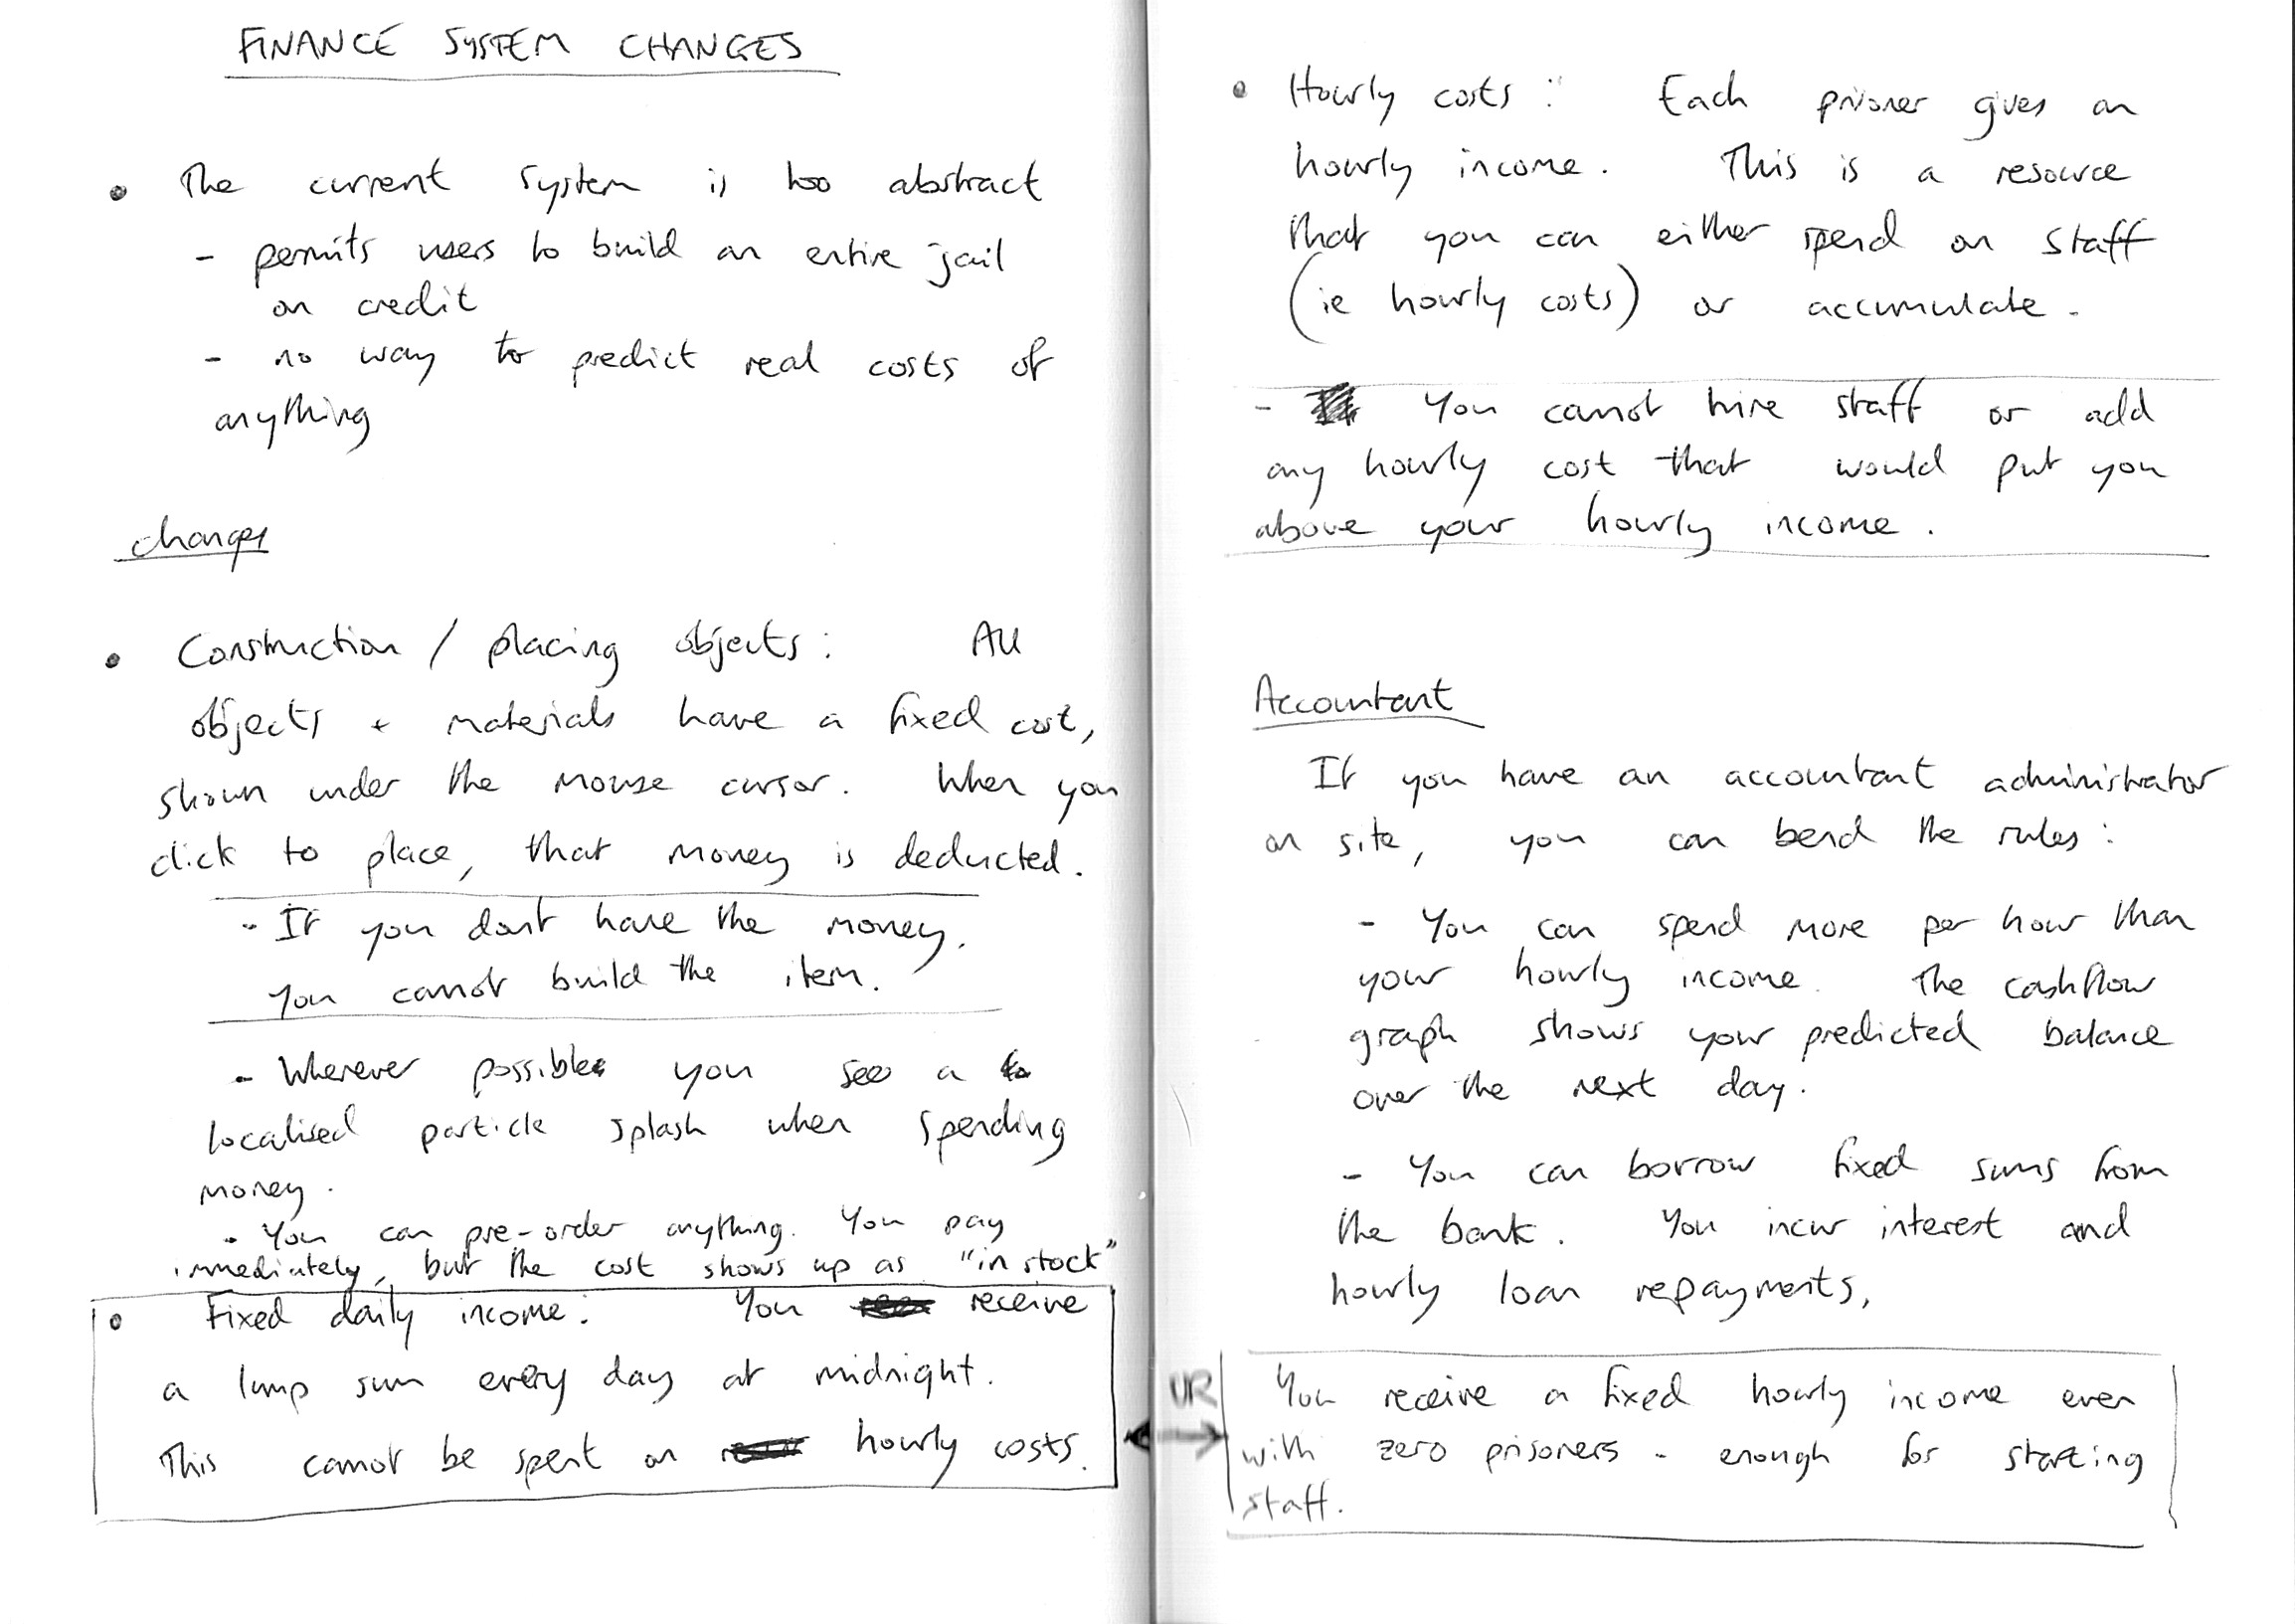 FINANCE SYSTEM CHANGES
The current system is too abstract
- permits users to build an entire jail
on credit
- no way to predict real costs of
anything
changes
Construction / placing objects : All
objects + materials have a fixed cost,
shown under the mouse cursor. When you
click to place, that money is deducted.
- If you dont have the money,
you cannot build the item.
- Wherever possible you see a
localised particle splash when spending
money.
- You can pre-order anything. You pay
immediately, but the cost shows up as "in stock"
Fixed daily income : You receive
a lump sum every day at midnight.
This cannot be spent on hourly costs.
OR
Hourly costs : Each prisoner gives an
hourly income. This is a resource
that you can either spend on staff
(ie hourly costs) or accumulate.
- You cannot hire staff or add
any hourly cost that would put you
above your hourly income.
Accountant
If you have an accountant administrator
on site, you can bend the rules :
- You can spend more per hour than
your hourly income. The cashflow
graph shows your predicted balance
over the next day.
- You can borrow fixed sums from
the bank. You incur interest and
hourly loan repayments,
You receive a fixed hourly income even
with zero prisoners - enough for starting
staff.